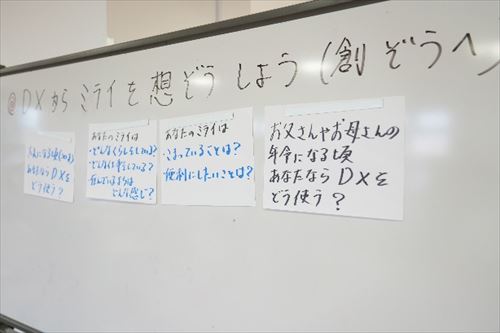 DXからミライを想ぞうしよう(創ぞうへ)
大人になる頃
あなたならDXを
どう使う?
あなたのミライは
・どんなくらしをしている?
・どんな仕事をしている?
・住んでいるまちは
どんな感じ?
あなたのミライは
・こまっていることは?
・便利にしたいことは?
お父さんやお母さんの
年令になる頃
あなたならDXを
どう使う?